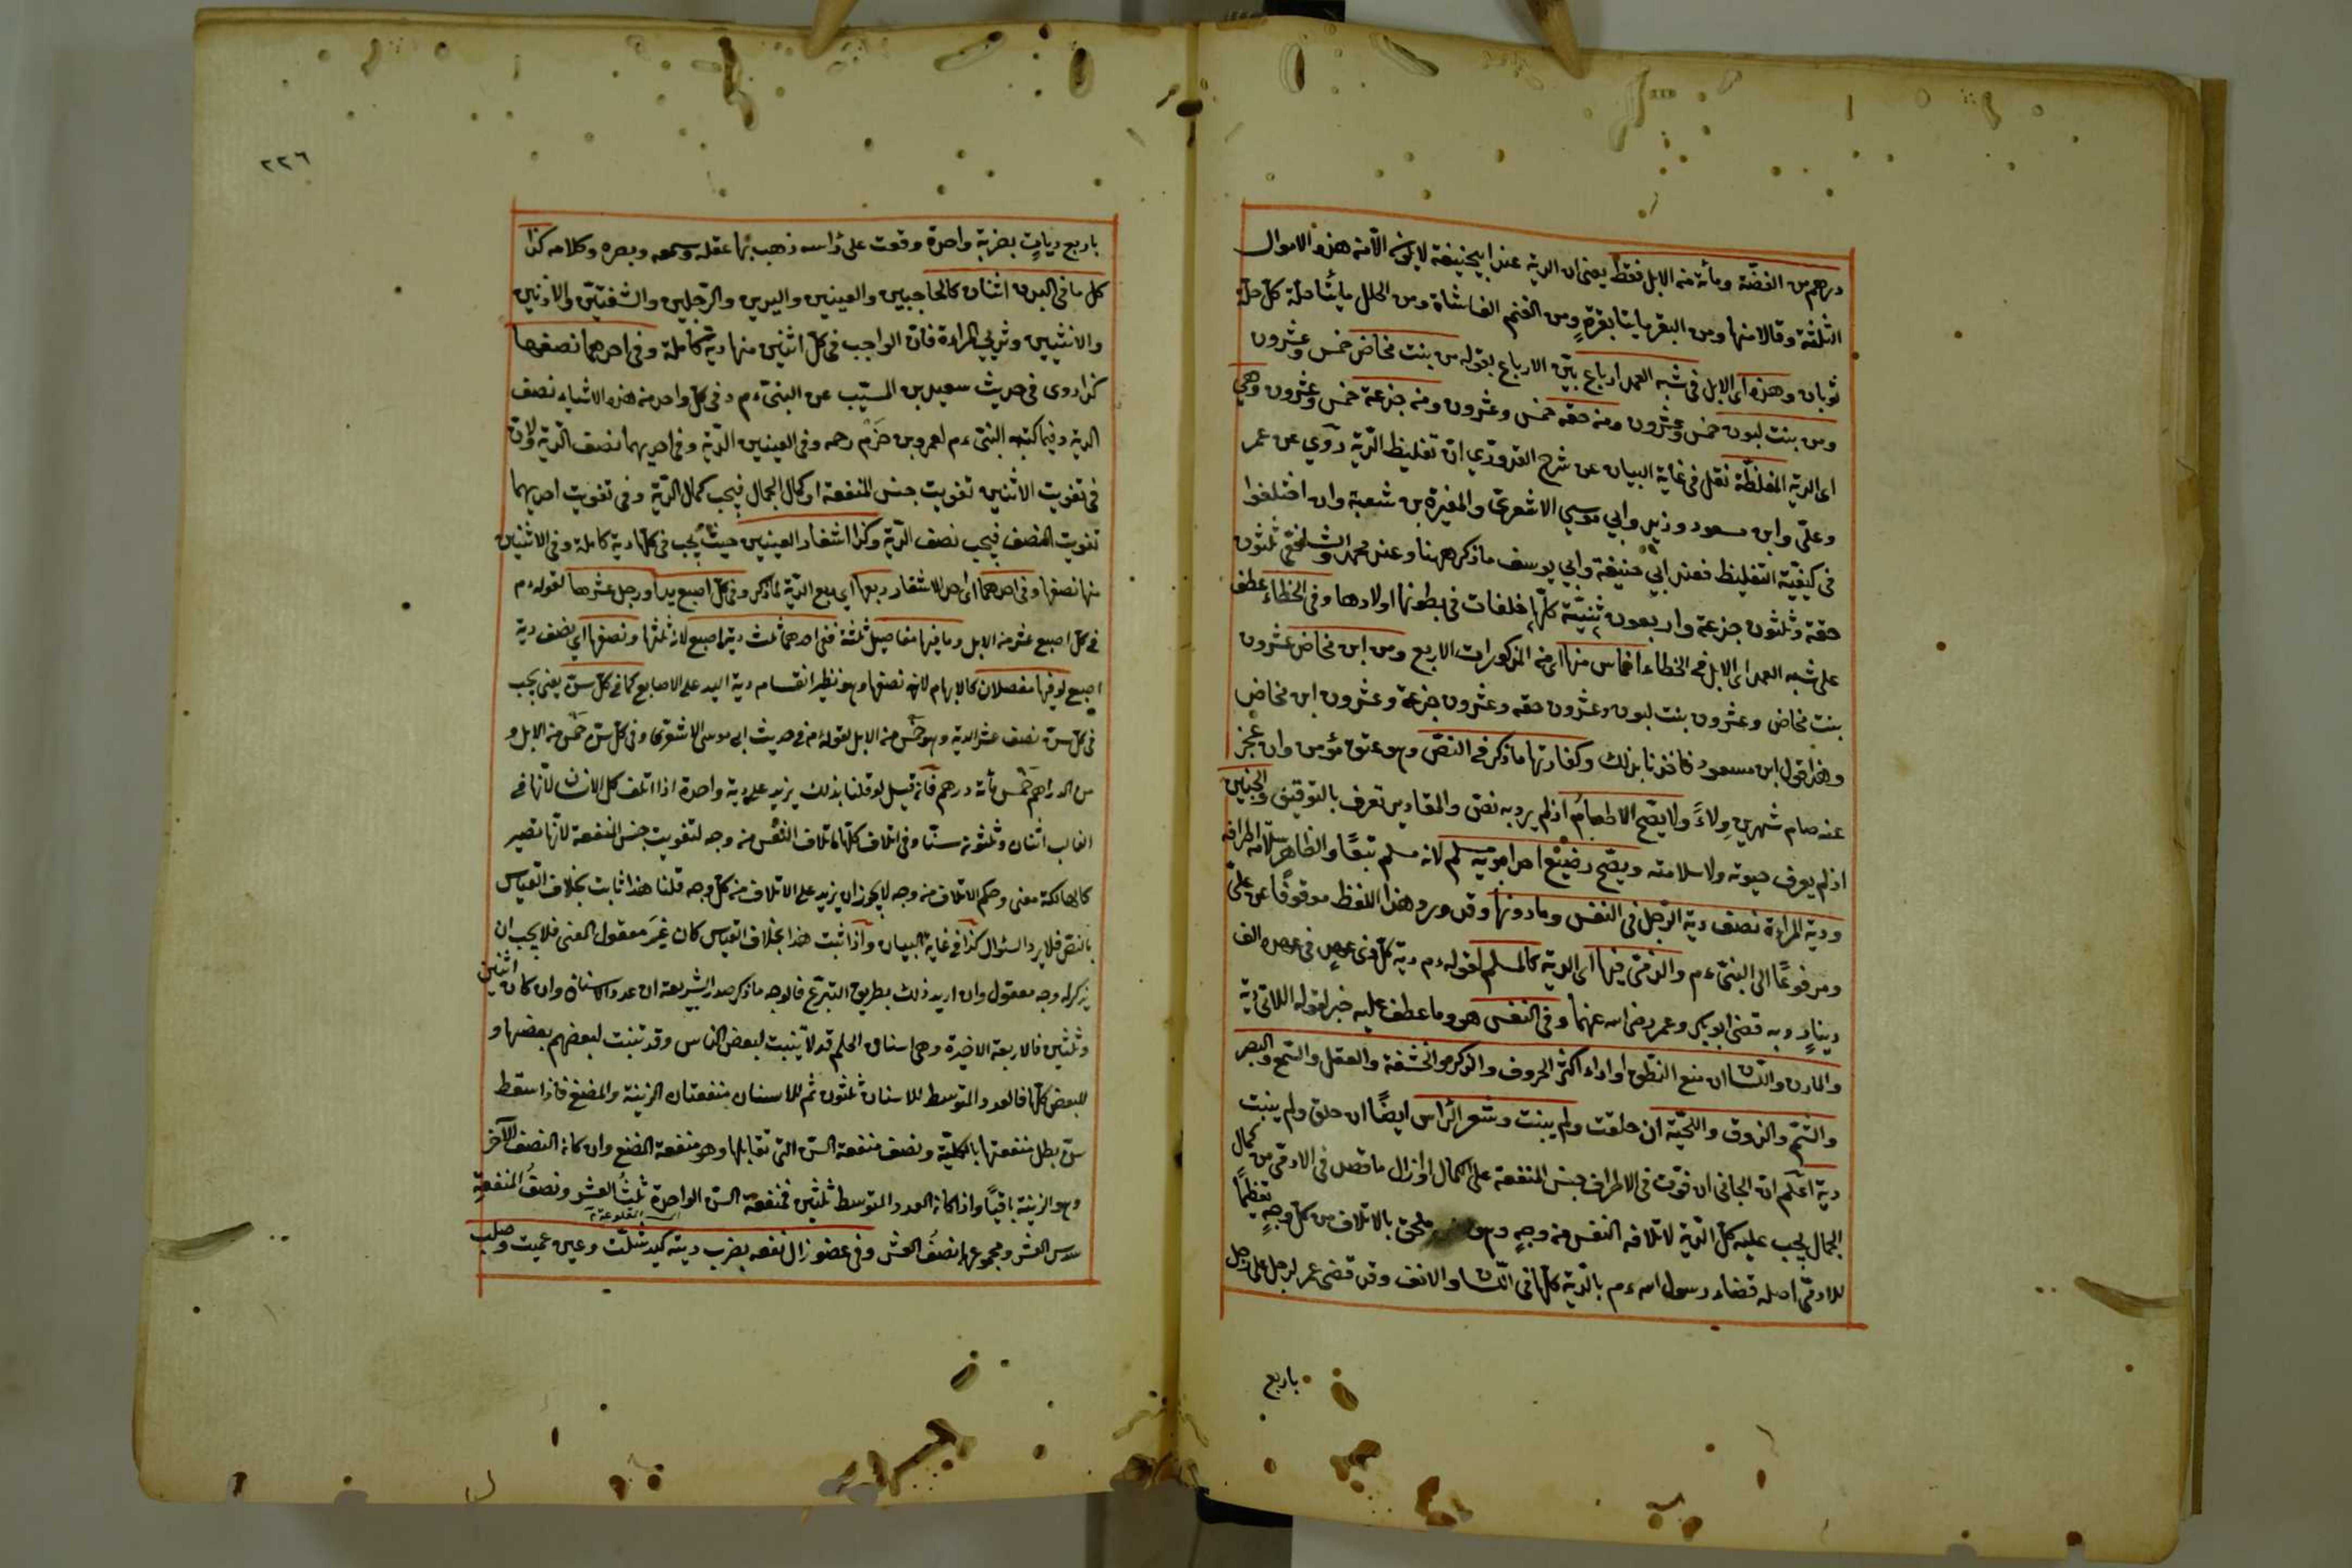 درهم من الفضّة ومأة منه الابل فقط يعنى ان الدية عند ابيحنيفة لايكون الّا منه هذه الاموال
الثلثة وقالا منها ومن البقر مايتا بقرةٍ ومن الغنم الفا شاة ومن الحلل مايتا حلّة كلّ حلّة
ثوبان وهذه اى الابل فى شبه العمد ارباع بيّن الارباع بقوله من بنت مخاض خمس وعشرون
ومن بنت لبون خمس وعشرون ومنه حقه خمس وعشرون ومنه جزعة خمس وعشرون وهي
اى الدية المغلظّة نقل فى غاية البيان عن شرح القدوري انّ تغليظ الدّية روي عن عمر
وعلىّ وابن مسعود وزيد وابي موسي الاشعرىّ والمغيرة بن شعبة وان اختلفوا
فى كيفيّة التغليظ فعند ابي حنيفة وابي يوسف ماذكر ههنا وعند محمد والشافعىّ ثلثون
حقة وثلثون جزعة واربعون ثنيّة كلّها خلفات فى بطونها اولادها وفى الخطاء عطف
على شبه العمد اى الابل فى الخطاء اخماس منها اى منه المذكورات الاربع ومن ابن مخاض عشرون
بنت مخاض وعشرون بنت لبون وعشرون حقه وعشرون جزعة وعشرون ابن مخاض
وهذا قول ابن مسعود فاخذنا بذلك وكفارتها ماذكر فى النصّ وهو عتق مؤمن وان عجز
عنه صام شهرين وِلاءً ولايصّح الاطعامُ اذلم يرد به نصّ والمقادير تعرف بالتوقيف والجنين
اذلم يعرف حيوته ولا سلامته ويصّح رضيْع احد ابويه مسلم لانه مسلم تبعًا والظاهر سلامه اطرافه
ودية المراءة نصف دية الرّجل فى النفس ومادونها وقد ورد هذا اللفظ موقوفًا عن علىّ
ومرفوعًا الى النبىّ ءم والذمّى فيها اى الدية كالمسلم لقوله ءم دية كلّ ذى عهدٍ فى عهده الف
دينارٍ وبه قضى ابو بكر وعمر رضى اسه عنهما وفى النفس هو وما عطف عليه خبر لقوله اللاتى دية
والمارن واللّسان ان منع النّطق او اداء اكثر الحروف والذكر والحشفة والعقل والسّمع والبصر
والشّمّ والذوق واللحّية ان حلقت ولم ينبت وشعر الرّاس ايضًا ان حلق ولم ينبت
دية اعلم انّ الجانى ان فوّت فى الاطراف جنس المنفعة على الكمال او ازال ماقصد فى الادمّى من كمال
الجمال يجب عليه كلّ الدّية لاتلافه النفس منه وجهٍ وهى ملحق بالاتلاف من كلّ وجهٍ تعظيمًا
للادمّى اصله قضاء رسول اسه ءم بالدّية كلّها فى اللّسان والانف وقد قضى عمر لرجل على رجل
باربع
٢٢٦
باربع دياتٍ بضربة واحدة وقعت على رأسه ذهب بها عقله وسمعه وبصره وكلامه كذا
كل مافى البدن اثنان كالحاجبين والعينين واليدين والرّجلين والشفتيّن والاذنين
والانثيين وثديي المراءة فانّ الواجب فى كلّ اثنين منها دية كاملة وفى احدهما نصفها
كذا روى فى حديث سعيد بن المسيّب عن النبىّ ءم وفى كلّ واحد منه هذه الاشياء نصف
الدية وفيما كتبه النبىّ ءم لعمرو بن حَزم رحمه وفى العينين الدّية وفى احديهما نصف الدّية ولانّ
فى تفويت الاثنين تفويت جنس المنفعة او كمال الجمال فيجب كمال الدّية وفى تفويت احديهما
تفويت النصف فيجب نصف الدّية وكذا اشفار العينين حيث يجب فى كلّها دية كاملة وفى الاثنين
منها نصفها وفى احدهما اى احد الاشفار ربعها اى ربع الدّية لما ذكر وفى كلّ اصبع يد او رجل عشرها لقوله ءم
فى كلّ اصبع عشر منه الابل وما فيها مفاصيل ثلثة ففى احدهما ثلث دية اصبع لانه ثلثها ونصفها اى نصف دية
اصبع لو فيها مفصلان كالابهام لانه نصفها وهو نظير انقسام دية اليد على الاصابع كما فى كلّ سنّ يعنى يجب
فى كلّ سنّ نصف عشر الدية وهو خمْس منه الابل لقوله ءم فى حديث ابى موسى الاشعرى وفى كلّ سنّ خمْس منه الابل و
من الدراهم خمْس مأة درهم فانّ قيل لو قلنا بذلك يزيد على دية واحدة اذا اتلف كل الاسنان لانّها فى
الغالب اثنان وثلثون سنّا وفى اتلاف كلّها اتلاف النفْس منه وجه لتفويت جنس المنفعة لانّها تصير
كالهالكة معنى وحكم الاتلاف منه وجه لايجوز ان يزيد على الاتلاف منه كلّ وجه قلنا هذا ثابت بخلاف القياس
بالنصّ فلا يرد السؤال كذا فى غاية البيان واذا ثبت هذا بخلاف القياس كان غيْرَ معقول المعنى فلا يجب ان
يذكر له وجه معقول وان اريد ذلك بطريق التبرّع فالوجه ماذكر صدر الشريعة ان عدد الاسنان وان كان اثنين
وثلثين فالاربعة الاخيرة وهى اسنان الحلم قد لا تنبت لبعض الناس وقد تنبت لبعضهم بعضها و
للبعض كلّها فالعدد المتوسط للاسنان ثلثون ثم للاسنان منفعتان الزينة والمضغ فاذا سقط
سنّ بطل منفعتها بالكليّة ونصف منفعة السنّ التى تقابلها وهو منفعة المضغ وان كانه النصف الآخر
وهو الزينة باقيًا واذا كانه العدد المتوسط ثلثين فمنفعة السنّ الواحدة ثلثُ العشر ونصفُ المنفعةِ
سدس العشر ومجموعهما نصفُ العشر وفى عضو زال نفعه بضرب ديته كيد شلّت وعين عميت وصلب